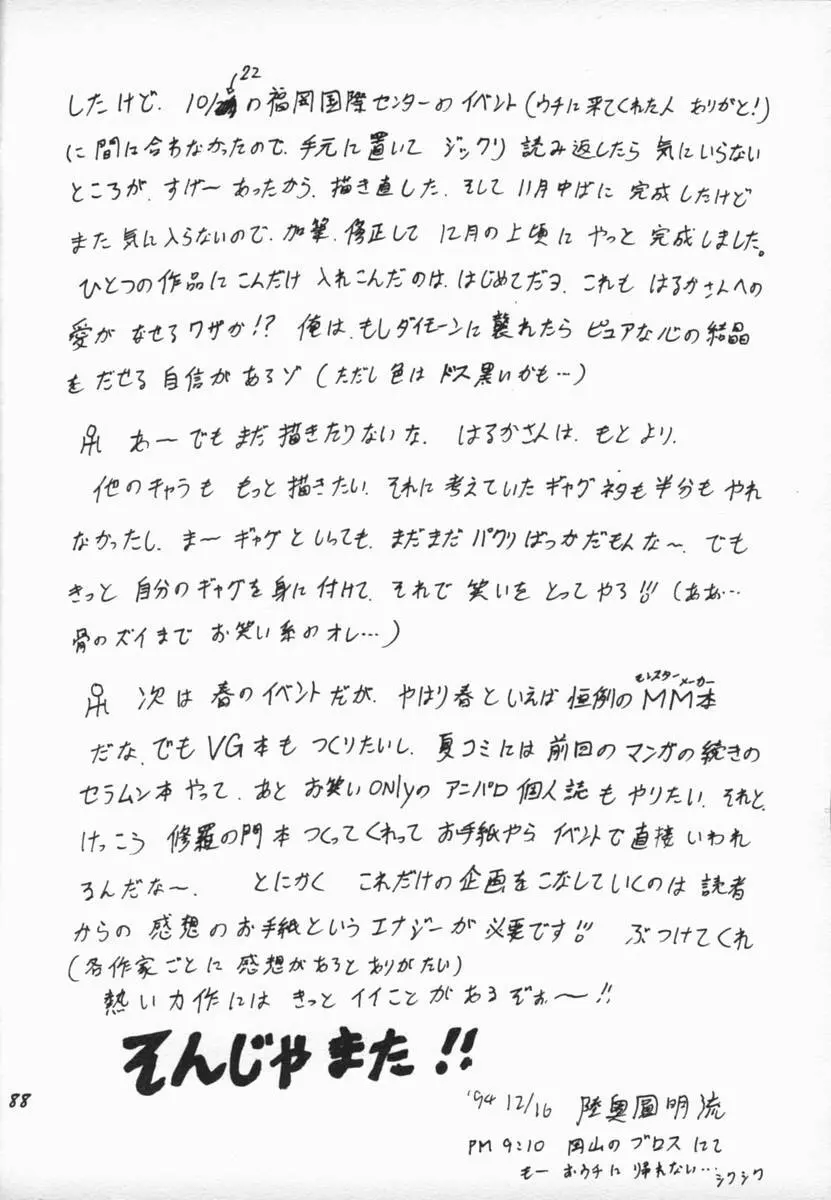 22
したけど、10/の福岡国際センターのイベント(ウチに来てくれた人 ありがと!)
に間に合わなかったので、手元に置いて ジックリ 読み返したら 気にいらない
ところが、すげー あったから、描き直した、そして 11月中ばに 完成したけど
また 気に入らないので、加筆、修正して 12月の上頃に やっと 完成しました。
ひとつの作品に こんだけ 入れこんだのは、はじめてだヨ、これも はるかさんへの
愛が なせるワザか!? 俺は、もしダイモーンに襲れたら ピュアな心の結晶
を だせる 自信があるゾ (ただし色は ドス黒いかも…)
あ〜 でも まだ 描きたりないな、はるかさんは、もとより、
他のキャラも もっと描きたい、それに 考えていた ギャグネタも半分も やれ
なかったし、ま〜 ギャグと いっても、まだまだ パクリばっかだもんな〜、でも
きっと 自分のギャグを身に付けて、それで 笑いを とってやる!! (ああ…
骨のズイまで お笑い系のオレ…)
次は 春のイベントだが、やはり春といえば 恒例の MM本
モンスターメーカー
だな、でも VG本も つくりたいし、夏コミには 前回の マンガの続きの
セラムン本 やって、あと お笑いonlyの アニパロ個人誌も やりたい、それと、
けっこう 修羅の門本 つくってくれって お手紙やら イベントで直接いわれ
るんだな〜、 とにかく これだけの企画を こなしていくのは 読者
からの 感想の お手紙という エナジーが 必要です!! ぶつけてくれ
(各作家ごとに 感想があるとありがたい)
熱い力作には きっと イイことがあるぞぉ〜!!
そんじゃ また!!
88
'94 12/16 陸奥圓明流
PM 9:10 岡山のブロスにて
もー おウチに 帰れない… シクシク